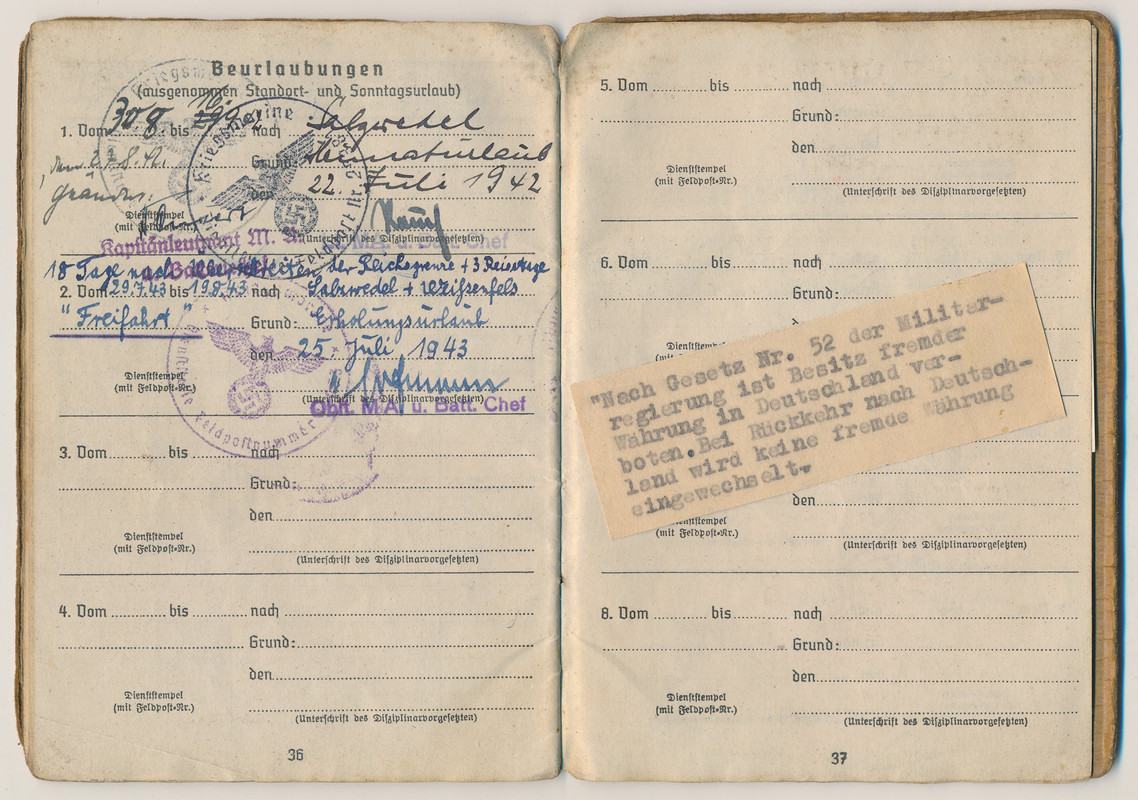 Beurlaubungen
(ausgenommen Standort- und Sonntagsurlaub)
1. Vom 30 8 bis nach Salzwedel
Grund: Heimaturlaub
den 22. Juli 1942
Dienststempel
(mit Feldpost-Nr.)
(Unterschrift des Disziplinarvorgesetzten)
Kriegsmarine
Kapitänleutnant M. A.
u. Batt. Chef
18 Tage nach der Reichsgrenze + 3 Reisetage
2. Vom 29.7.43 bis 19.8.43 nach Salzwedel + Weißenfels
"Freifahrt" Grund: Erholungsurlaub
den 25. Juli 1943
Dienststempel
(mit Feldpost-Nr.)
(Unterschrift des Disziplinarvorgesetzten)
Oblt. M.A. u. Batt. Chef
Feldpostnummer
3. Vom bis nach
Grund:
den
Dienststempel
(mit Feldpost-Nr.)
(Unterschrift des Disziplinarvorgesetzten)
4. Vom bis nach
Grund:
den
Dienststempel
(mit Feldpost-Nr.)
(Unterschrift des Disziplinarvorgesetzten)
36
5. Vom bis nach
Grund:
den
Dienststempel
(mit Feldpost-Nr.)
(Unterschrift des Disziplinarvorgesetzten)
6. Vom bis nach
Grund:
"Nach Gesetz Nr. 52 der Militer-
regierung ist Besitz fremder
Währung in Deutschland ver-
boten.Bei Rückkehr nach Deutsch-
land wird keine fremde Währung
eingewechselt.
den
(mit Feldpost-Nr.)
(Unterschrift des Disziplinarvorgesetzten)
8. Vom bis nach
Grund:
den
Dienststempel
(mit Feldpost-Nr.)
(Unterschrift des Disziplinarvorgesetzten)
37